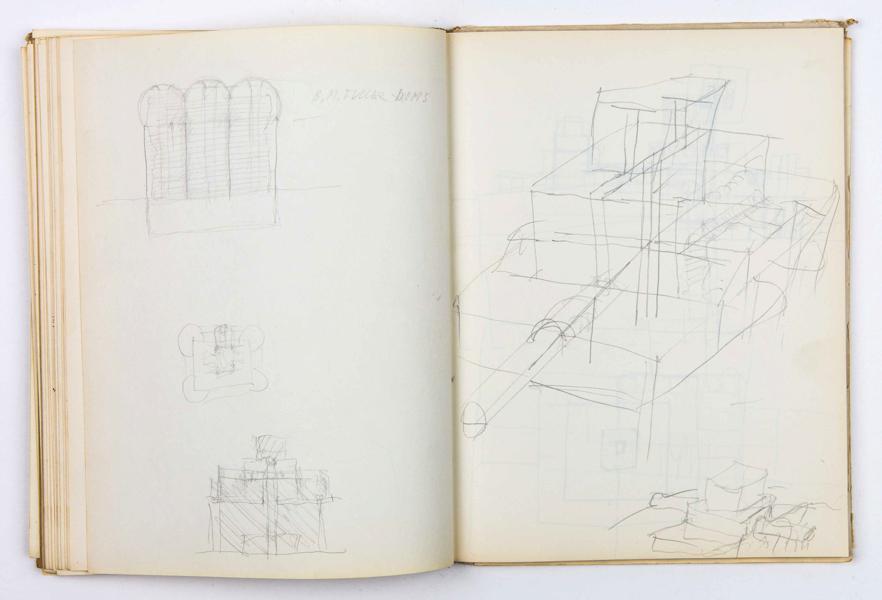 B.M. FULLER DOMS